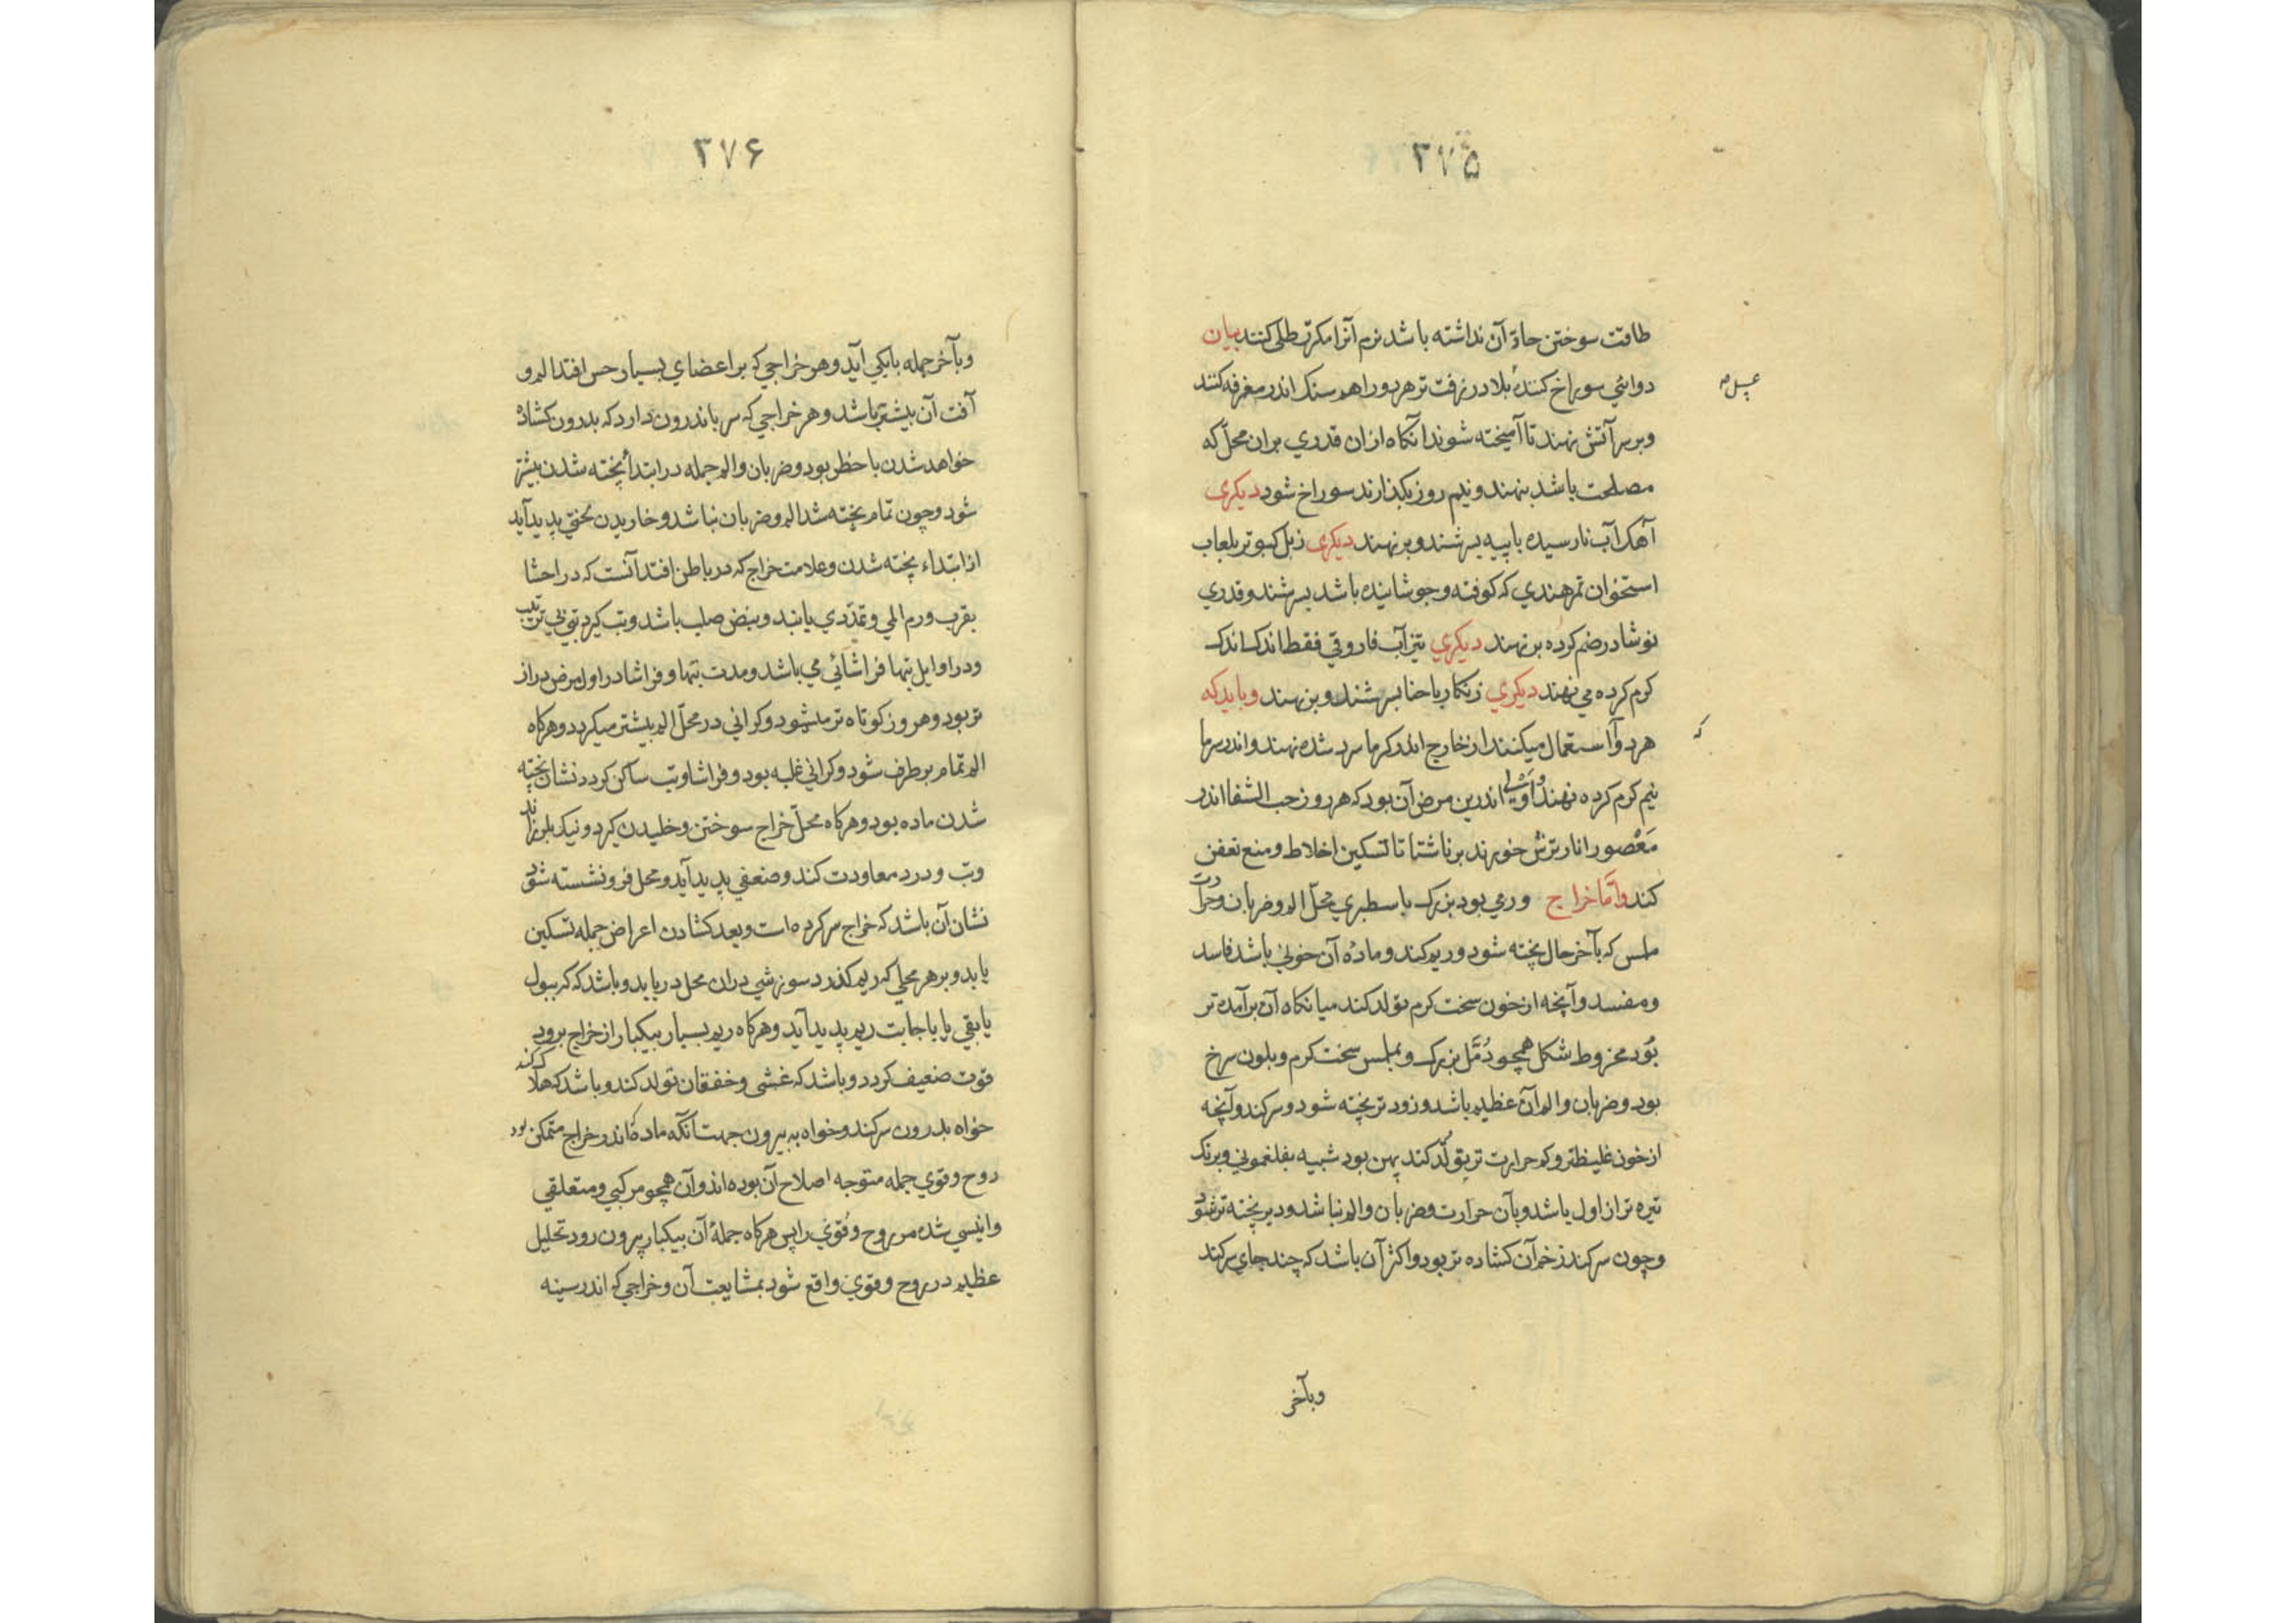 ۳۷۵
طاقت سوختن حادّ آن نداشته باشد نرم آنرا مکرّر طلی کنند بیان
دوائی سوراخ کنندهٔ بلادر زفت تر هر دو را هم سنک اندر مغرفه کنند
عسل
وبر سر آتش نهند تا آمیخته شوند انکاه ازان قدری بران محلّ که
مصلحت باشد بنهند ونیم روز بکذارند سوراخ شود دیکری
آهک آب نارسیده باپیه بسرشند وبر نهند دیکری زبل کبوتر بلعاب
استخوان تمرهندی که کوفته وجوشانیده باشد بسرشند وقدری
نوشادر ضم کرده بر نهند دیکری تیزآب فاروقی فقط اندک اندک
کرم کرده می نهند دیکری زنکار باحنا بسرشند وبر نهند وباید که
هر دوآ استعمال میکنند از خارج اندر کرما سرد شده نهند واندر سرما
که
نیم کرم کرده نهند واَولی اندرین مرض آن بود که هر روز حب الشفا اندر
مَعْصور انار ترش خورند بر ناشتا تا تسکین اخلاط ومنع تعفن
کند وامّا خراج ورمی بود بزرک باسطبری محلّ الم وضربان وحرارت
ملمس که بآخر حال پخته شود وریم کند ومادّه آن خونی باشد فاسد
ومفسد وآنچه از خون سخت کرم تولد کند میانکاه آن برآمده تر
بُود مخروط شکل همچو دُمَّل بزرک وبملمس سخت کرم وبلون سرخ
بود وضربان والم آن عظیم باشد وزود تر پخته شود وسر کند وآنچه
از خون غلیظتر وکم حرارت تر تولّد کند پهن بود شبیه بفلغمونی وبرنک
تیره تر از اول باشد وبآن حرارت وضربان والم نباشد ودیر پخته تر شود
وچون سر کند زخم آن کشاده تر بود واکثر آن باشد که چند جای سر کند
وبآخر
۳۷۶
وبآخر جمله بایکی آید وهر خراجی که بر اعضای بسیار حس افتد الم و
آفت آن بیشتر باشد وهر خراجی که سر باندرون دارد که بدرون کشاده
خواهد شدن باخطر بود وضربان والم جمله در ابتدأ پخته شدن بیشتر
شود وچون تمام پخته شد الم وضربان نباشد وخاریدن محنتی پدید آید
از ابتداء پخته شدن وعلامت خراج که در باطن افتد آنست که در احشا
بقرب ورم المی وتمدّدی یابند ونبض صلب باشد وتب کیرد تبی بی ترتیب
ودر اوایل تبها فراشائی می باشد ومدت تبها وفراشا در اول مرض دراز
تر بود وهر روز کوتاه تر میشود وکرانی در محلّ الم بیشتر میکردد وهرکاه
الم تمام بر طرف شود وکرانی غلبه بود وفراشا وتب ساکن کردد نشان پخته
شدن ماده بود وهرکاه محلّ خراج سوختن وخلیدن کیرد ونیک بلرزاند
وتب ودرد معاودت کند وضعفی پدید آید ومحل فرو نشسته شود
نشان آن باشد که خراج سر کرده است وبعد کشادن اعراض جمله تسکین
یابد وبر هر محلی که ریم کذرد سوزشی دران محل دریابد وباشد که کر ببول
یا بقی یا باجابت ریم پدید آید وهرکاه ریم بسیار بیکبار از خراج برود
قوت ضعیف کردد وباشد که غشی وخفقان تولد کند وباشد که هلاک کند
خواه بدرون سر کند وخواه به بیرون جهت آنکه مادهٔ که اندر خراج متمکن بود
روح وقوی جمله متوجه اصلاح آن بوده اند وآن همچو مرکبی ومتعلقی
وانیسی شده مر روح وقُوی را پس هرکاه جملهٔ آن بیکبار بیرون رود تحلیل
عظیم در روح وقوی واقع شود بمشایعت آن وخراجی که اندر سینه